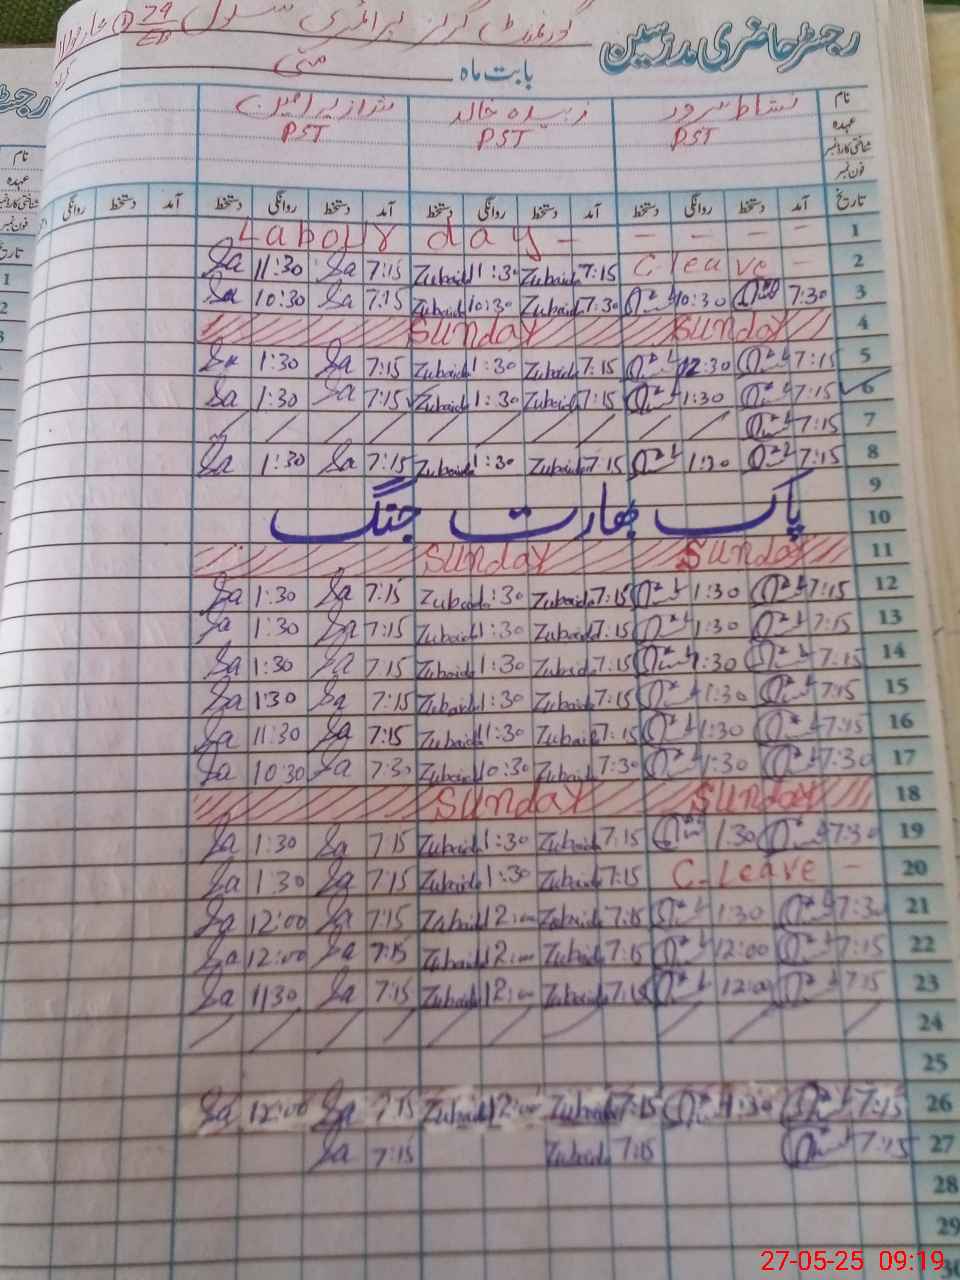 رجسٹر حاضری مدرسین گورنمنٹ گرلز پرائمری سکول
بابت ماہ مئی
نام نشاط سرور زبیدہ خالد شازیہ امین
عہدہ PST PST PST
شناختی کارڈ نمبر
فون نمبر
تاریخ آمد دستخط روانگی دستخط آمد دستخط روانگی دستخط آمد دستخط روانگی دستخط آمد دستخط روانگی
Labour day - - - - - 1
Sa 11:30 Sa 7:15 Zubaida 11:30 Zubaida 7:15 C leave - 2
Sa 10:30 Sa 7:15 Zubaida 10:30 Zubaida 7:30 10:30 7:30 3
Sunday Sunday 4
Sa 1:30 Sa 7:15 Zubaida 1:30 Zubaida 7:15 12:30 7:15 5
Sa 1:30 Sa 7:15 Zubaida 1:30 Zubaida 7:15 1:30 7:15 6
7:15 7
Sa 1:30 Sa 7:15 Zubaida 1:30 Zubaida 7:15 1:30 7:15 8
9
پاک بھارت جنگ 10
Sunday Sunday 11
Sa 1:30 Sa 7:15 Zubaida 1:30 Zubaida 7:15 1:30 7:15 12
Sa 1:30 Sa 7:15 Zubaida 1:30 Zubaida 7:15 1:30 7:15 13
Sa 1:30 Sa 7:15 Zubaida 1:30 Zubaida 7:15 1:30 7:15 14
Sa 1:30 Sa 7:15 Zubaida 1:30 Zubaida 7:15 1:30 7:15 15
Sa 11:30 Sa 7:15 Zubaida 11:30 Zubaida 7:15 1:30 7:15 16
Sa 10:30 Sa 7:30 Zubaida 10:30 Zubaida 7:30 1:30 7:30 17
Sunday Sunday 18
Sa 1:30 Sa 7:15 Zubaida 1:30 Zubaida 7:15 1:30 7:30 19
Sa 1:30 Sa 7:15 Zubaida 1:30 Zubaida 7:15 C-Leave - 20
Sa 12:00 Sa 7:15 Zubaida 12:00 Zubaida 7:15 1:30 7:30 21
Sa 12:00 Sa 7:15 Zubaida 12:00 Zubaida 7:15 12:00 7:15 22
Sa 1130 Sa 7:15 Zubaida 12:00 Zubaida 7:15 12:00 7:15 23
24
25
Sa 12:00 Sa 7:15 Zubaida 12:00 Zubaida 7:15 1:30 7:15 26
Sa 7:15 Zubaida 7:15 7:15 27
28
29
27-05-25 09:19